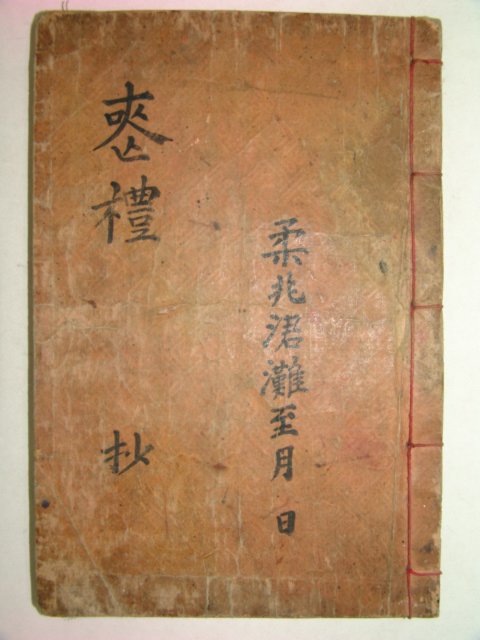 柔兆涒灘至月 日
喪禮 抄